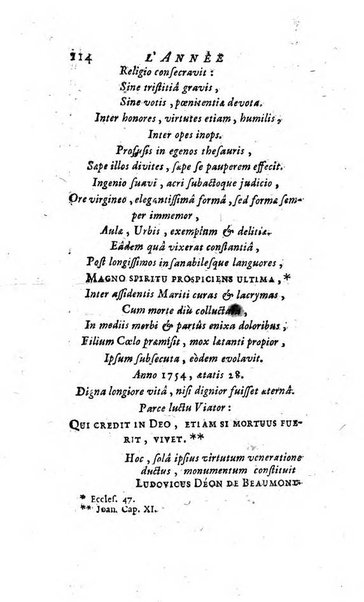 214 L'ANNÉE
Religio consecravit :
Sine tristitiâ gravis,
Sine votis, pœnitentiâ devota.
Inter honores, virtutes etiam, humilis,
Inter opes inops.
Profusis in egenos thesauris,
Sæpe illos divites, sæpe se pauperem effecit.
Ingenio suavi, acri subactoque judicio,
Ore virgineo, elegantissimâ formâ, sed sem-
per immemor,
Aulæ, Urbis, exemplum & delitiæ.
Eâdem quâ vixerat constantiâ,
Post longissimos insanabilesque languores,
MAGNO SPIRITU PROSPICIENS ULTIMA, *
Inter assidentis Mariti curas & lacrymas,
Cum morte diù colluctata,
In mediis morbi & partûs enixa doloribus,
Filium Cœlo præmisit, mox latanti propior,
Ipsum subsecuta, eòdem evolavit.
Anno 1754, ætatis 28.
Digna longiore vitâ, nisi dignior fuisset æternâ.
Parce luctu Viator :
QUI CREDIT IN DEO, ETIAM SI MORTUUS FUE-
RIT, VIVET. **
Hoc, solâ ipsius virtutum veneratione
ductus, monumentum constituit
LUDOVICUS DÉON DE BEAUMOND
* Eccles. 47.
** Joan. Cap. XI.